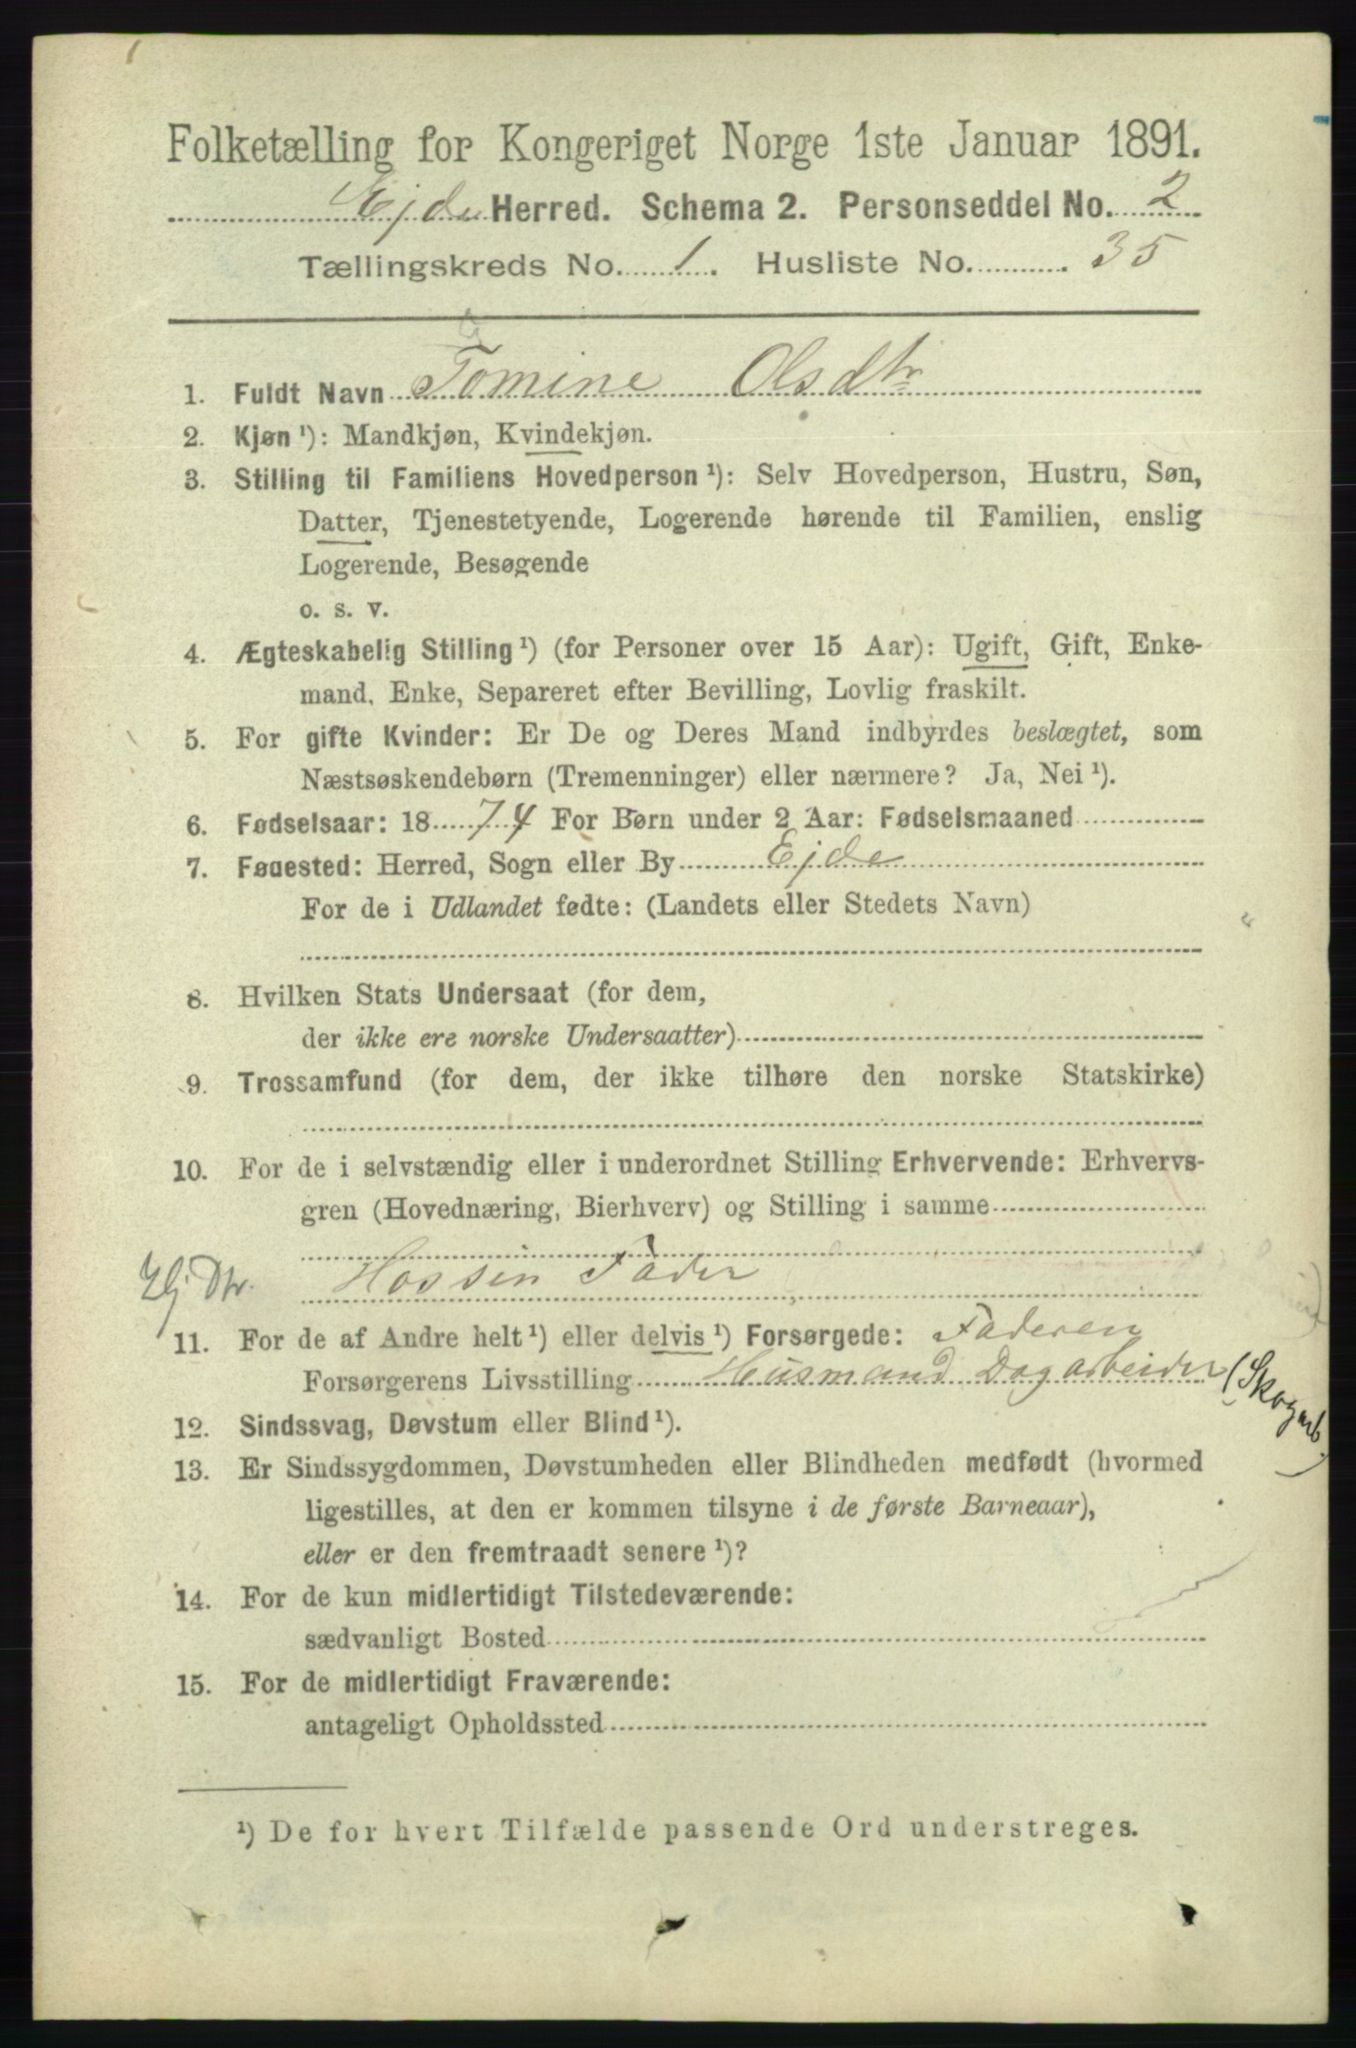 Folketælling for Kongeriget Norge 1ste Januar 1891.
Ejde Herred. Schema 2. Personseddel No. 2
Tællingskreds No. 1. Husliste No. 35
1. Fuldt Navn Tomine Olsdtr
2. Kjøn ¹): Mandkjøn, Kvindekjøn.
3. Stilling til Familiens Hovedperson ¹): Selv Hovedperson, Hustru, Søn,
Datter, Tjenestetyende, Logerende hørende til Familien, enslig
Logerende, Besøgende
o. s. v.
4. Ægteskabelig Stilling ¹) (for Personer over 15 Aar): Ugift, Gift, Enke-
mand, Enke, Separeret efter Bevilling, Lovlig fraskilt.
5. For gifte Kvinder: Er De og Deres Mand indbyrdes beslægtet, som
Næstsøskendebørn (Tremenninger) eller nærmere? Ja, Nei ¹).
6. Fødselsaar: 18 74 For Børn under 2 Aar: Fødselsmaaned
7. Fødested: Herred, Sogn eller By Ejde
For de i Udlandet fødte: (Landets eller Stedets Navn)
8. Hvilken Stats Undersaat (for dem,
der ikke ere norske Undersaatter)
9. Trossamfund (for dem, der ikke tilhøre den norske Statskirke)
10. For de i selvstændig eller i underordnet Stilling Erhvervende: Erhvervs-
gren (Hovednæring, Bierhverv) og Stilling i samme
Hj Dtr. Hos sin Fader
11. For de af Andre helt ¹) eller delvis ¹) Forsørgede: Faderen
Forsørgerens Livsstilling Husmand Dagarbeider (Skogarb)
12. Sindssvag, Døvstum eller Blind ¹).
13. Er Sindssygdommen, Døvstumheden eller Blindheden medfødt (hvormed
ligestilles, at den er kommen tilsyne i de første Barneaar),
eller er den fremtraadt senere ¹)?
14. For de kun midlertidigt Tilstedeværende:
sædvanligt Bosted
15. For de midlertidigt Fraværende:
antageligt Opholdssted
¹) De for hvert Tilfælde passende Ord understreges.